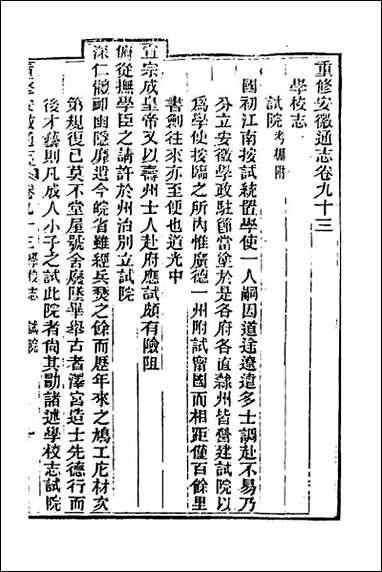 重修安徽通志卷九十三
學校志
試院考棚附
國初江南按試統置學使一人嗣因道途遼遠多士調赴不易乃
分立安徽學政駐節當塗於是各府各直隸州皆營建試院以
爲學使按臨之所內惟廣德一州附試甯國而相距僅百餘里
書劍往來亦至便也道光中
宣宗成皇帝又以壽州士人赴府應試頗有險阻
俯從撫學臣之請許於州治別立試院
深仁體卹幽隱靡遺今皖省雖經兵燹之餘而歷年來之鳩工庀材亥
第規復已莫不堂屋號舍廢墜畢舉古者澤宮造士先德行而
後才藝則凡成人小子之試此院者尙其勖諸述學校志試院
重修安徽通志 卷九十三 學校志 試院 一